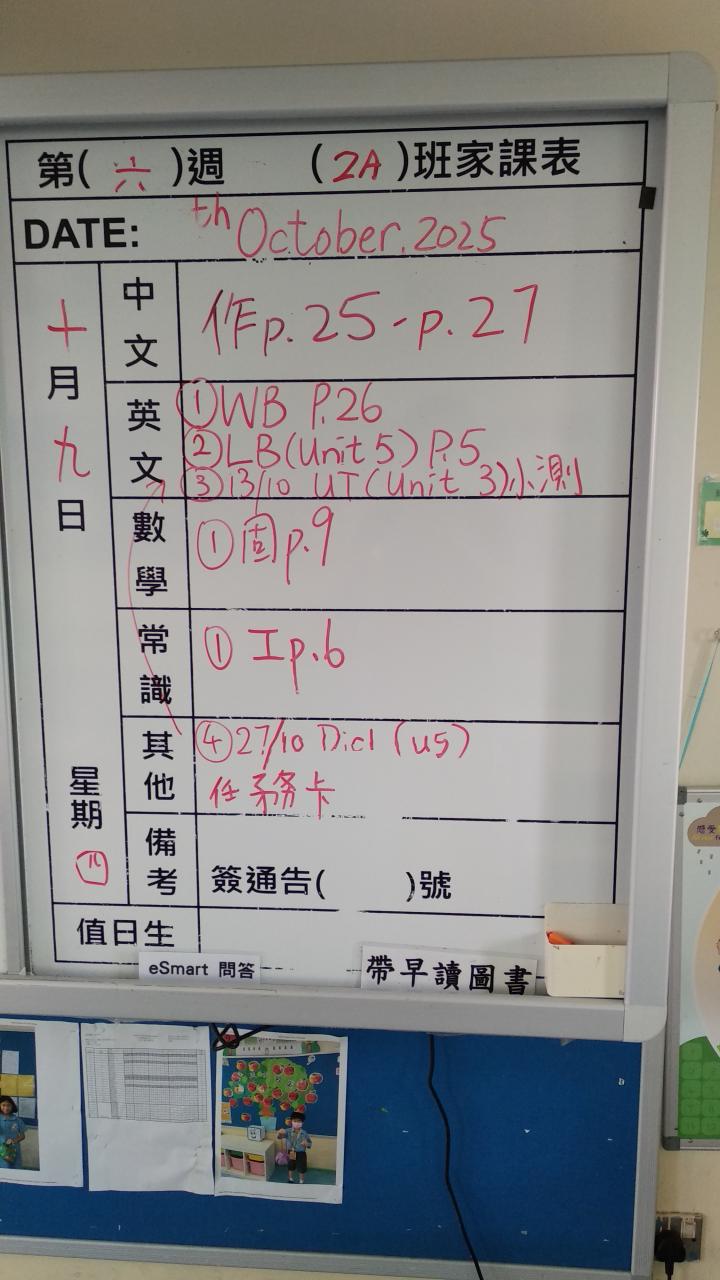 第(六)週 (2A)班家課表
DATE: th October.2025
十月九日
星期四
中文 作p.25-p.27
英文 ①WB P.26
②LB(Unit 5) P.5
③13/10 UT(Unit 3)小測
數學 ①固p.9
常識 ①工p.6
其他 ④27/10 Dict (u5)
任務卡
備考 簽通告( )號
值日生
eSmart 問答
帶早讀圖書